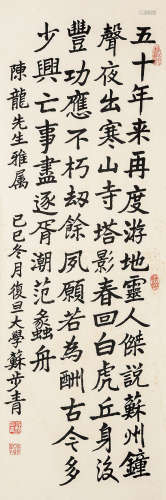 五十年来再度游地靈人傑説蘇州鐘
聲夜出寒山寺塔影春回白虎丘身後
豐功應不朽刼餘夙願若為酬古今多
少興亡事盡逐胥潮范蠡舟
陳龍先生雅属 己巳冬月復旦大學蘇步青